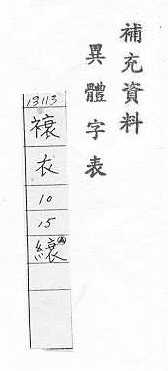 補充資料
異體字表
13113
衣
10
15
縗